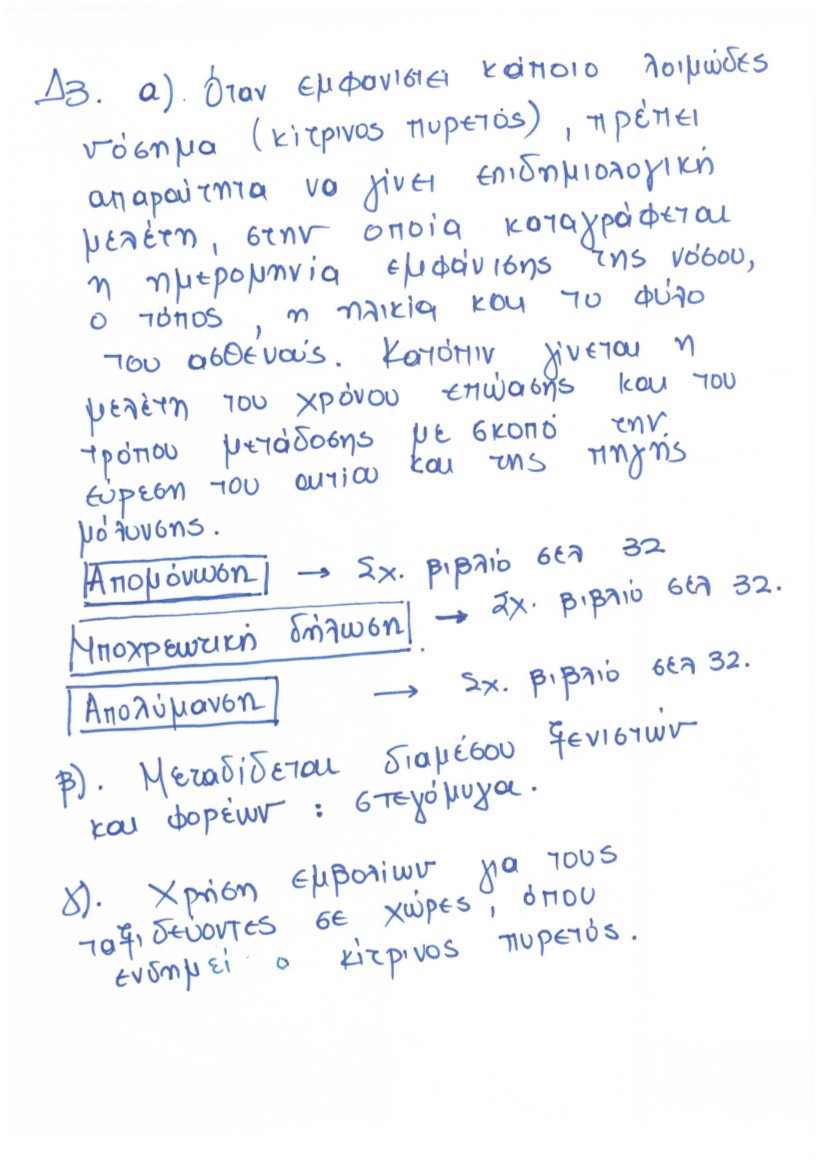 Δ3. α). Όταν εμφανιστεί κάποιο λοιμώδες
νόσημα (κίτρινος πυρετός), πρέπει
απαραίτητα να γίνει επιδημιολογική
μελέτη, στην οποία καταγράφεται
η ημερομηνία εμφάνισης της νόσου,
ο τόπος, η ηλικία και το φύλο
του ασθενούς. Κατόπιν γίνεται η
μελέτη του χρόνου επώασης και του
τρόπου μετάδοσης με σκοπό την
εύρεση του αιτίου και της πηγής
μόλυνσης.
Απομόνωση → Σχ. βιβλίο σελ 32
Υποχρεωτική δήλωση → Σχ. βιβλίο σελ 32.
Απολύμανση → Σχ. βιβλίο σελ 32.
β). Μεταδίδεται διαμέσου ξενιστών
και φορέων : στεγόμυγα.
γ). Χρήση εμβολίων για τους
ταξιδεύοντες σε χώρες, όπου
ενδημεί ο κίτρινος πυρετός.